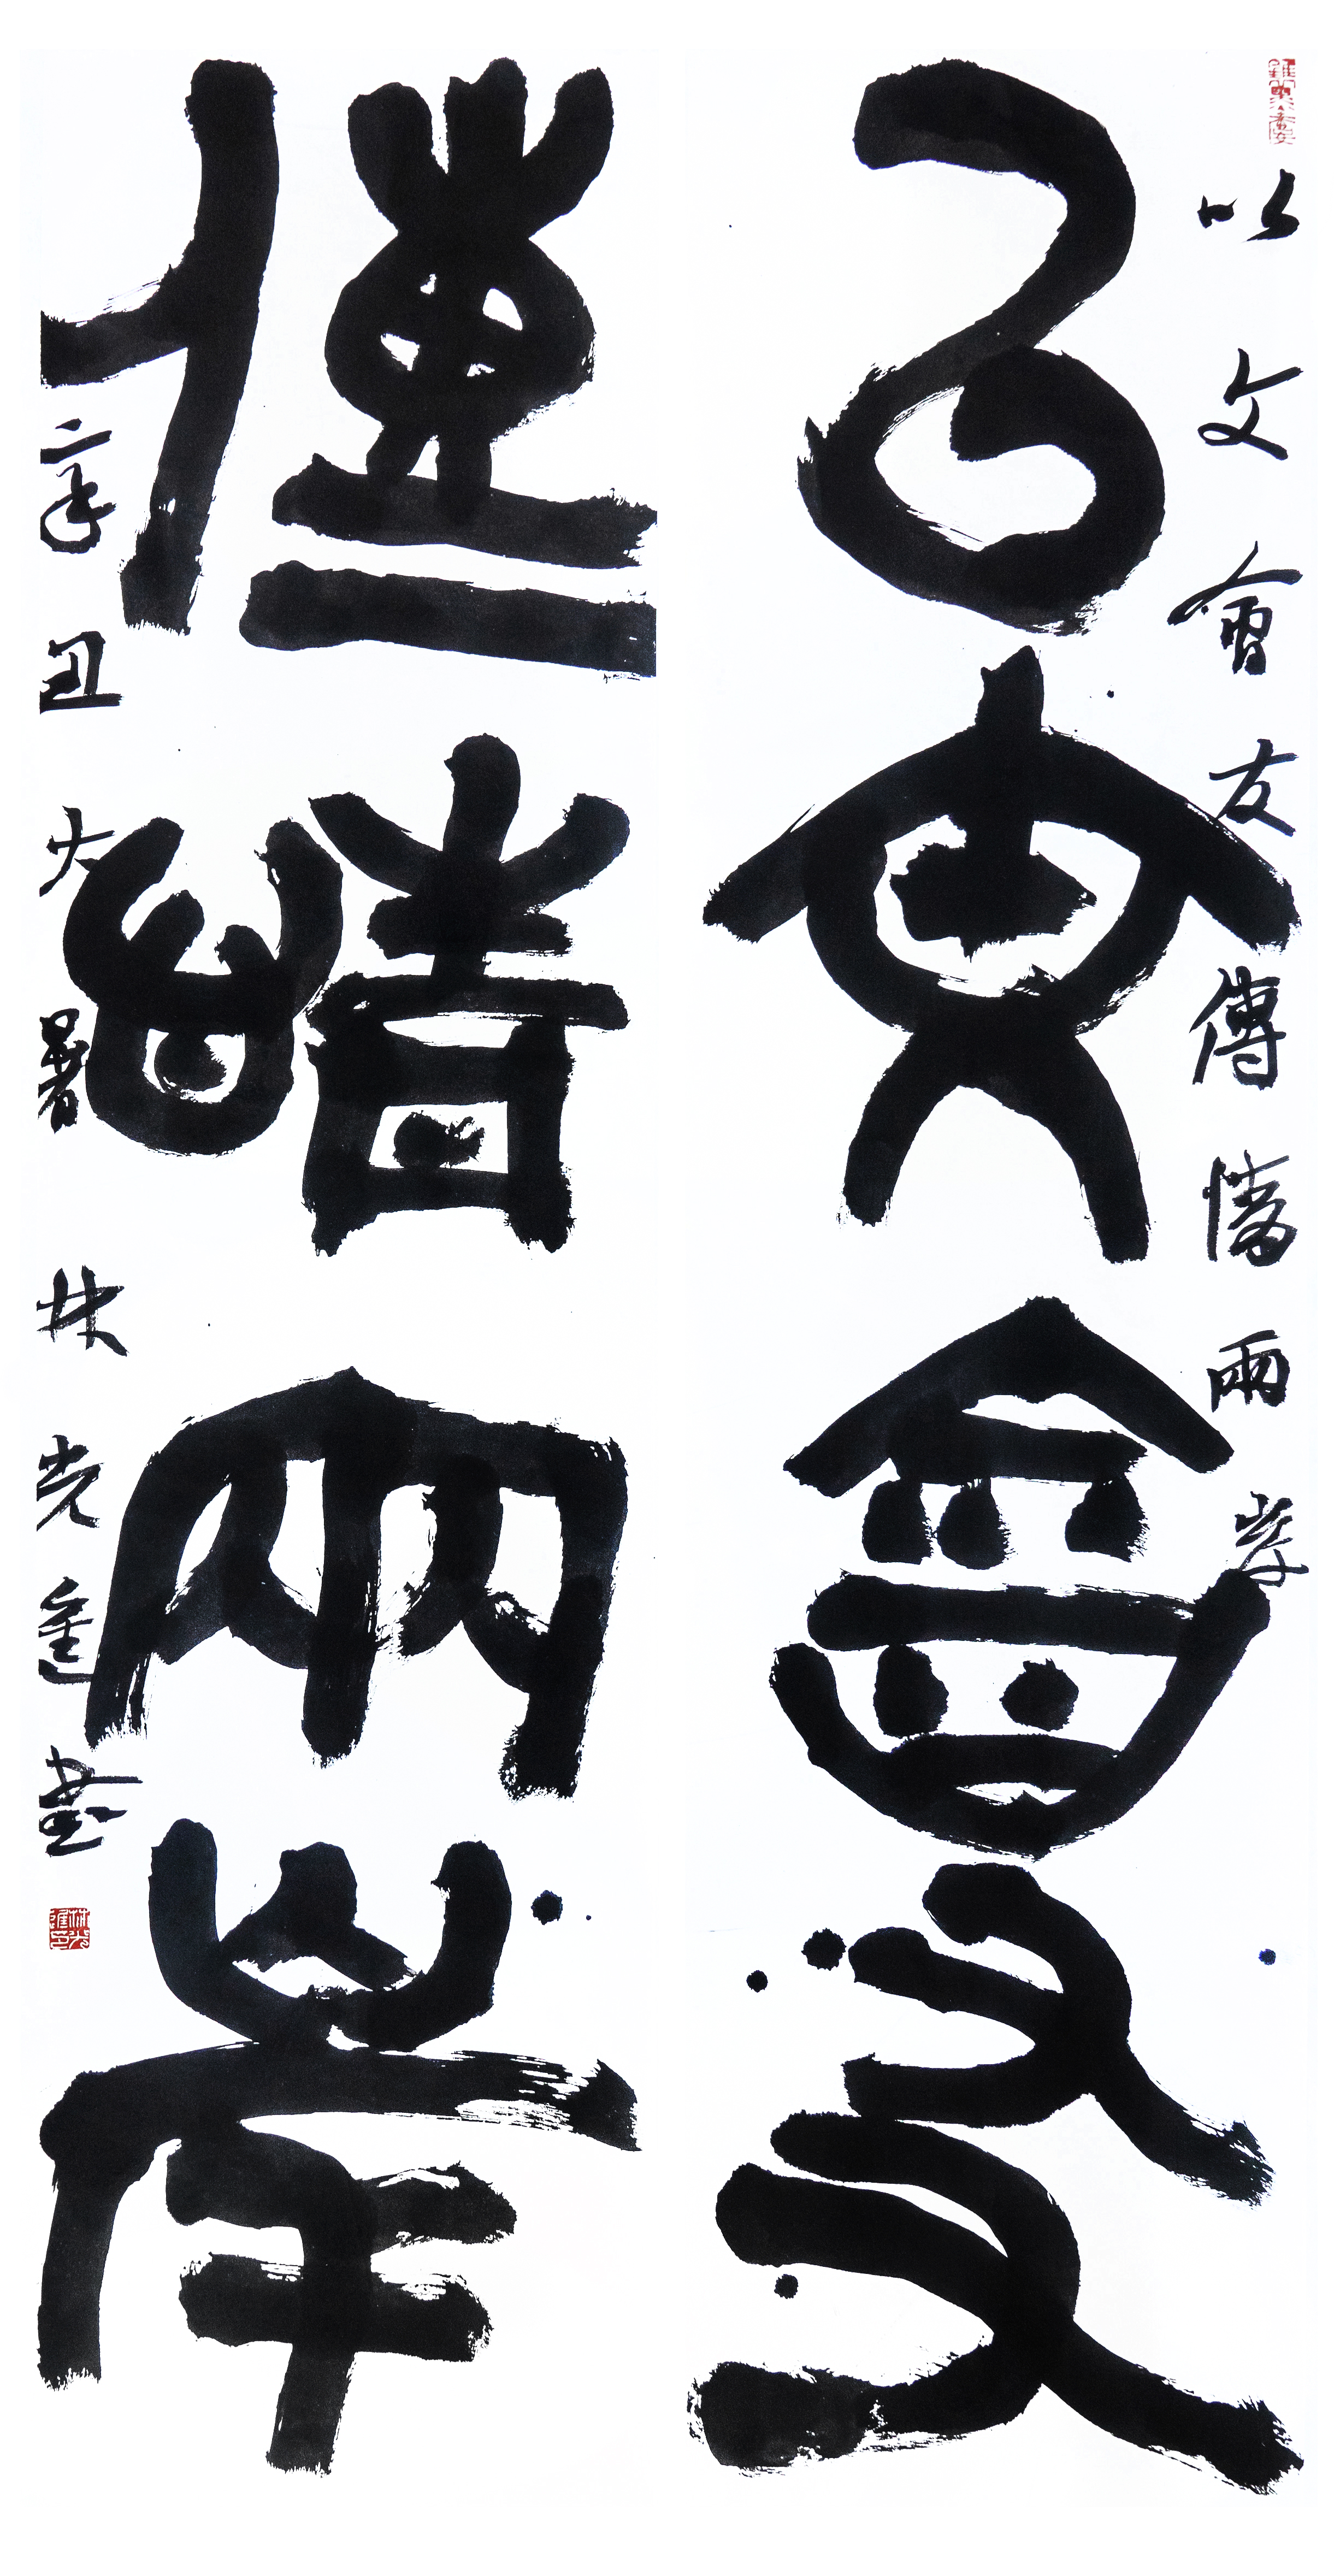 以文會友傳情兩岸
以文會友
傳情兩岸
辛丑大暑林光進書